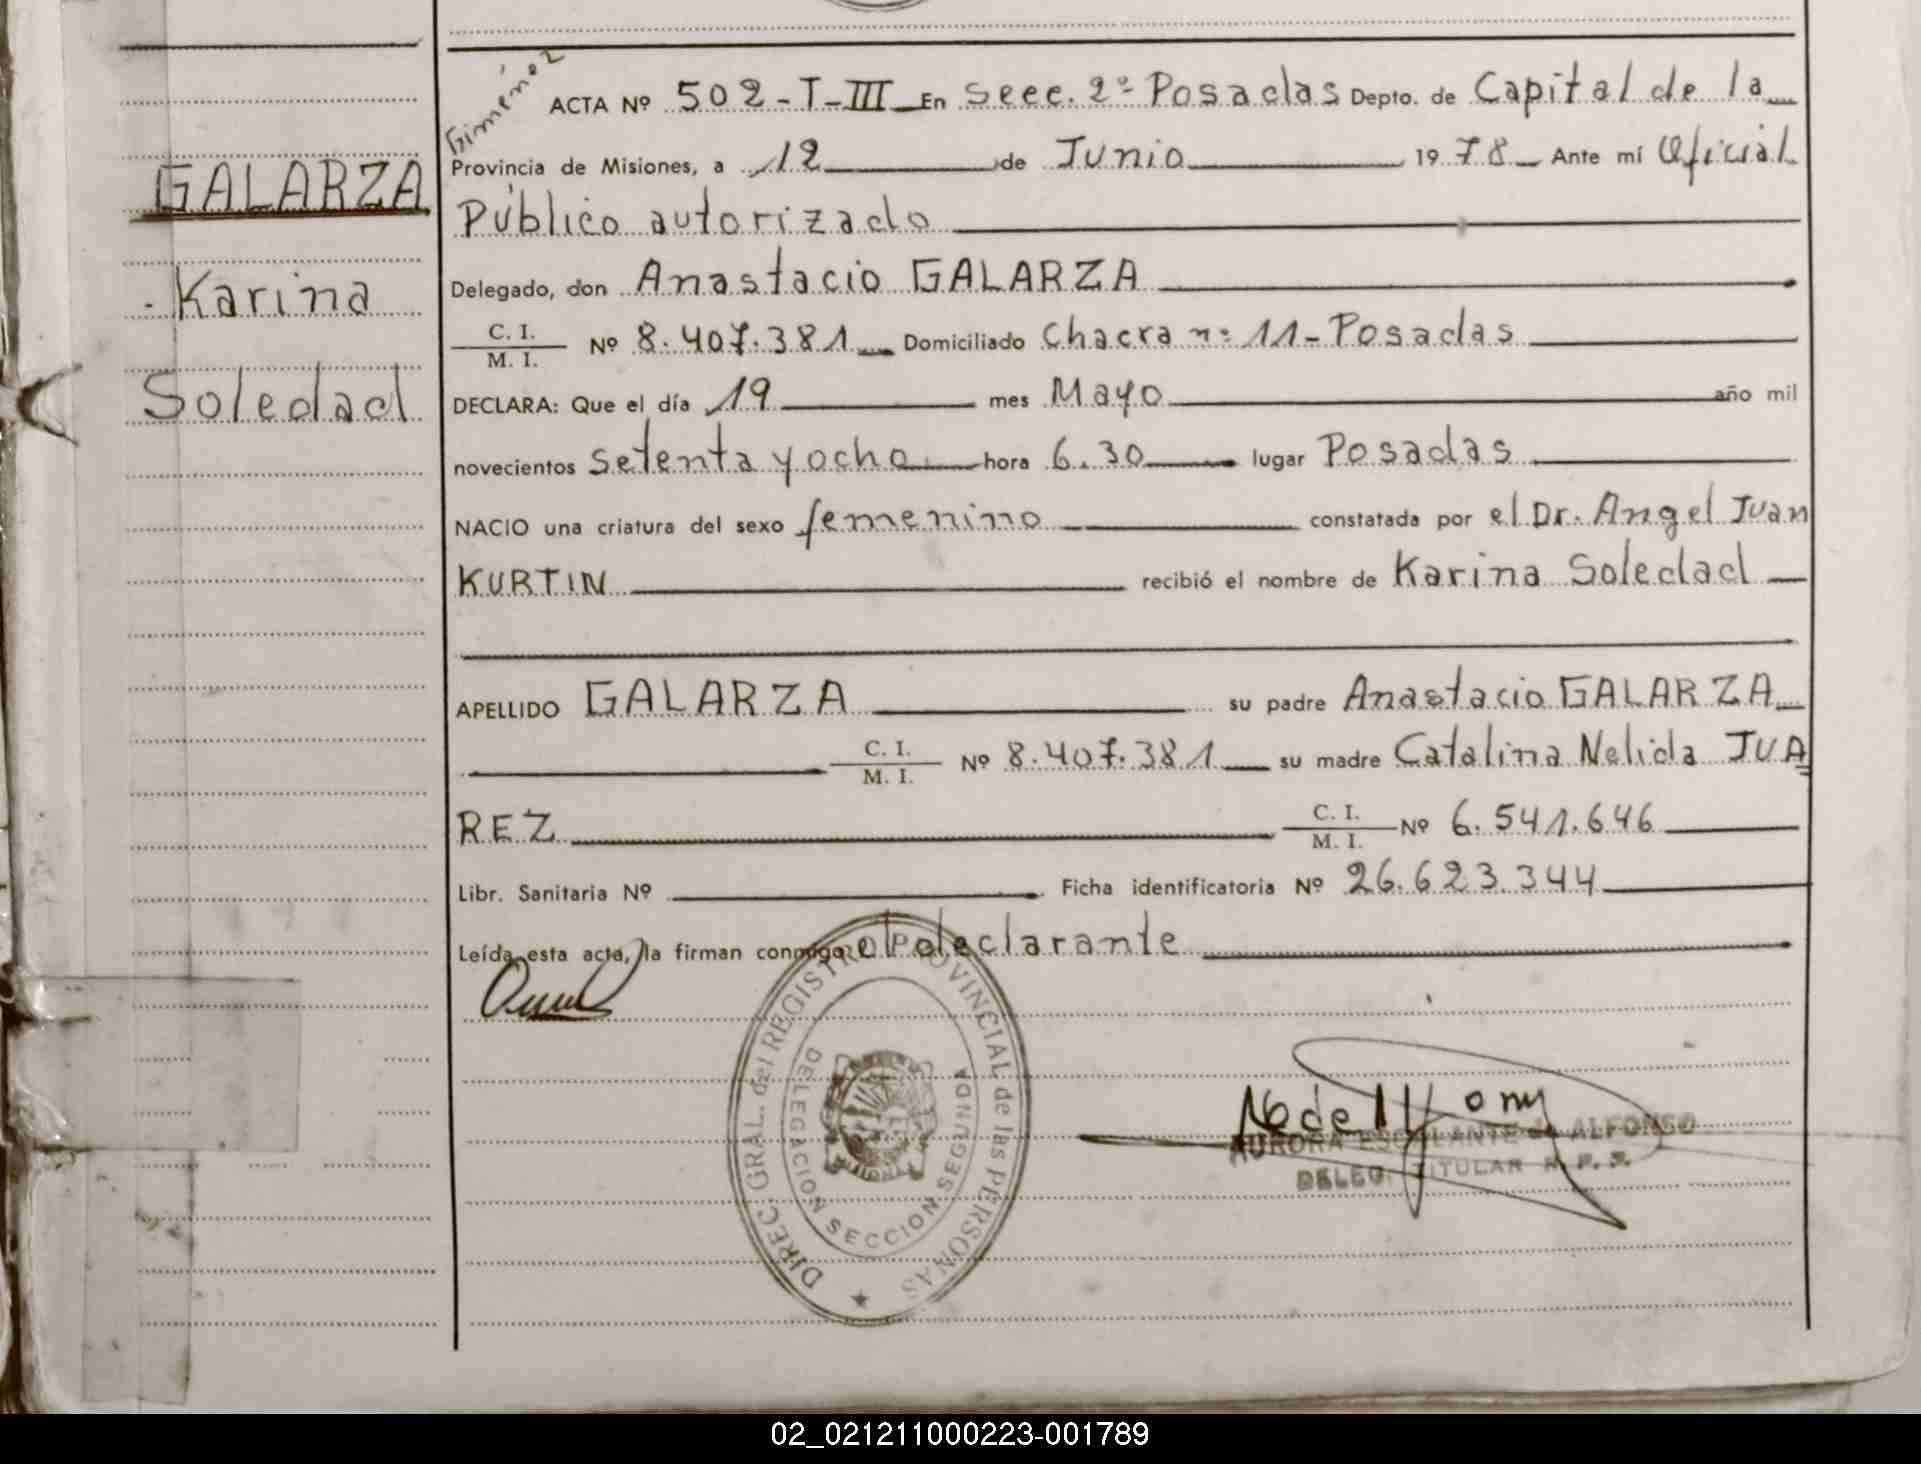 Giménez
GALARZA
Karina
Soledad
ACTA Nº 502-T-III En Secc. 2ª Posadas Depto. de Capital de la
Provincia de Misiones, a 12 de Junio 1978 Ante mí Oficial
Público autorizado
Delegado, don Anastacio GALARZA
C. I. / M. I. Nº 8.407.381 Domiciliado Chacra nº 11-Posadas
DECLARA: Que el día 19 mes Mayo año mil
novecientos setenta y ocho hora 6.30 lugar Posadas
NACIO una criatura del sexo femenino constatada por el Dr. Angel Juan
KURTIN recibió el nombre de Karina Soledad
APELLIDO GALARZA su padre Anastacio GALARZA
C. I. / M. I. Nº 8.407.381 su madre Catalina Nelida JUA
REZ C. I. / M. I. Nº 6.541.646
Libr. Sanitaria Nº Ficha identificatoria Nº 26.623.344
Leída esta acta, la firman conmigo el declarante
DIREC. GRAL. del REGISTRO PROVINCIAL de las PERSONAS
DELEGACION SECCION SEGUNDA
MISIONES
AURORA ESCALANTE de ALFONSO
DELEG. TITULAR R. P. P.
02_021211000223-001789